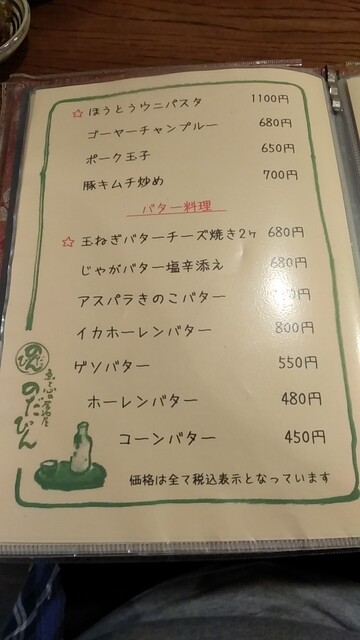 ☆ほうとうウニパスタ 1100円
ゴーヤーチャンプルー 680円
ポーク玉子 650円
豚キムチ炒め 700円
バター料理
☆玉ねぎバターチーズ焼き2ヶ 680円
じゃがバター塩辛添え 680円
アスパラきのこバター 0円
イカホーレンバター 800円
ゲソバター 550円
ホーレンバター 480円
コーンバター 450円
価格は全て税込表示となっています
のだぴん